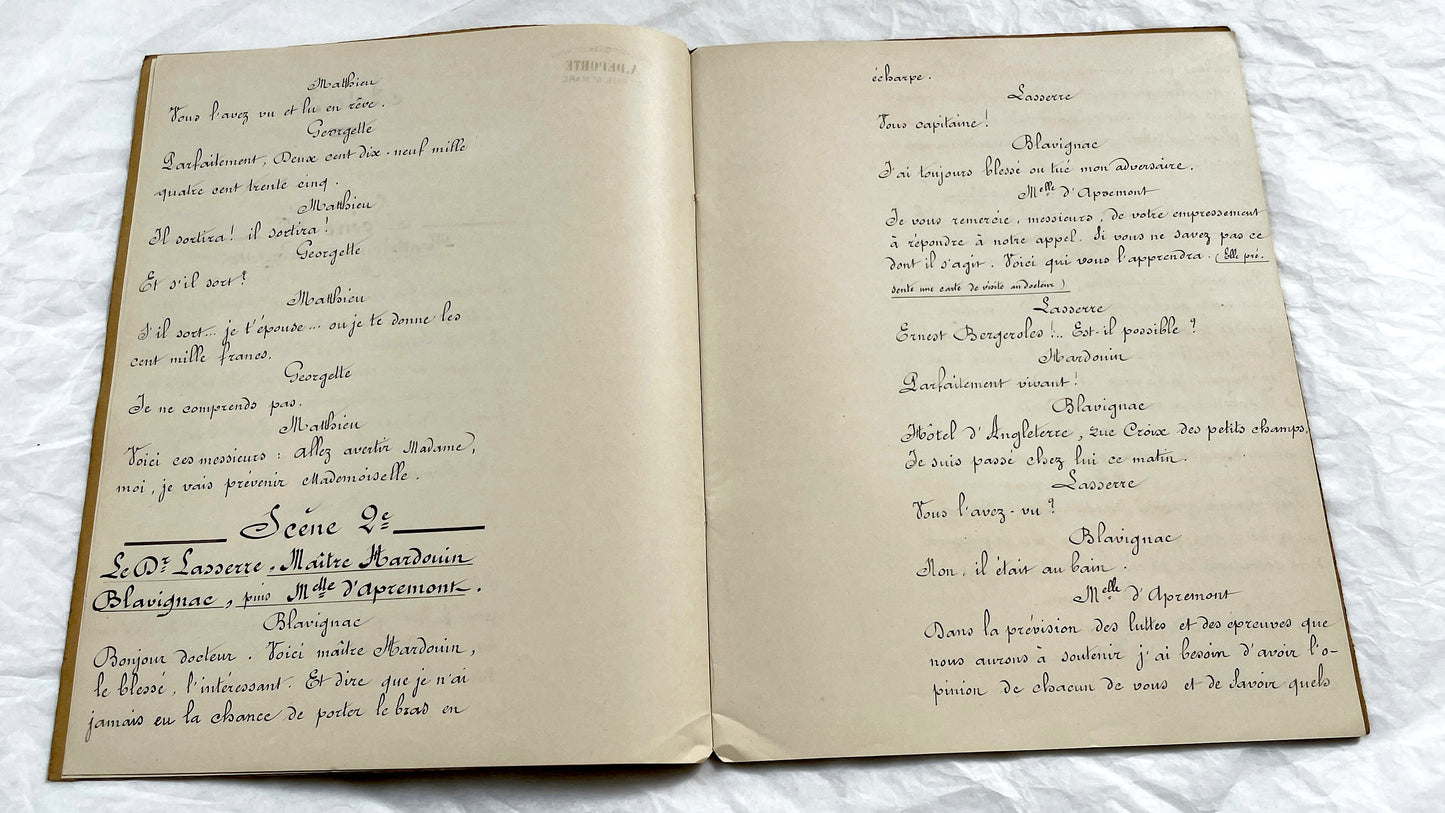 Matthieu
Vous l'avez vu et lu en rêve.
Georgette
Parfaitement, Deux cent dix-neuf mille
quatre cent trente cinq.
Matthieu
Il sortira! il sortira!
Georgette
Et s'il sort?
Matthieu
S'il sort... je t'épouse... ou je te donne les
cent mille francs.
Georgette
Je ne comprends pas.
Matthieu
Voici ces messieurs : Allez avertir Madame,
moi, je vais prévenir Mademoiselle.
Scène 2e
Le Dr Lasserre, Maître Hardouin
Blavignac, puis Melle d'Apremont.
Blavignac
Bonjour docteur. Voici maître Hardouin,
le blessé, l'intéressant. Et dire que je n'ai
jamais eu la chance de porter le bras en
A. DEPORTE
écharpe.
Lasserre
Vous capitaine!
Blavignac
J'ai toujours blessé ou tué mon adversaire.
Melle d'Apremont
Je vous remercie, messieurs, de votre empressement
à répondre à notre appel. Si vous ne savez pas ce
dont il s'agit. Voici qui vous l'apprendra. (Elle pré-
sente une carte de visite au docteur)
Lasserre
Ernest Bergeroles!.. Est-il possible?
Hardouin
Parfaitement vivant!
Blavignac
Hôtel d'Angleterre, rue Croix des petits champs.
Je suis passé chez lui ce matin.
Lasserre
Vous l'avez-vu?
Blavignac
Non, il était au bain.
Melle d'Apremont
Dans la prévision des luttes et des épreuves que
nous aurons à soutenir j'ai besoin d'avoir l'o-
pinion de chacun de vous et de savoir quels